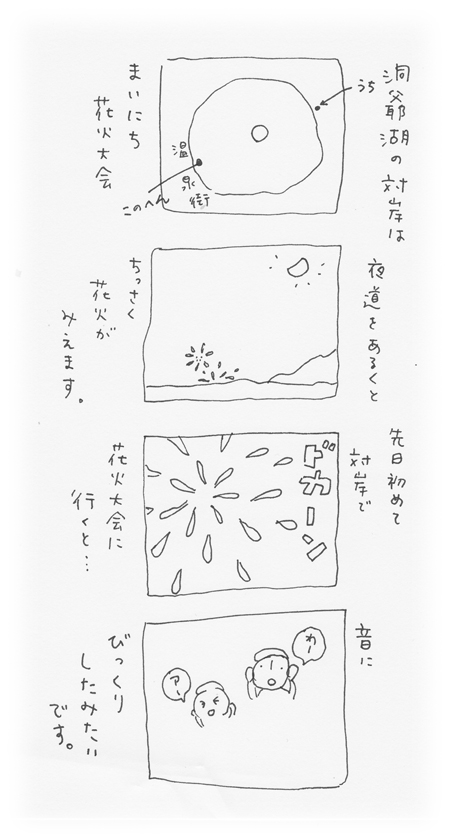 洞爺湖の対岸は
うち
温泉街
このへん
まいにち
花火大会
夜道をあるくと
ちっさく
花火が
みえます。
先日初めて
対岸で
ドカーン
花火大会に
行くと…
音に
わー
アー
びっくり
したみたい
です。